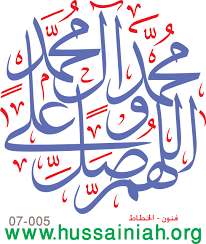 اللهم صل على محمد وآل محمد
فنون - الخطاط
07-005
www.hussainiah.org